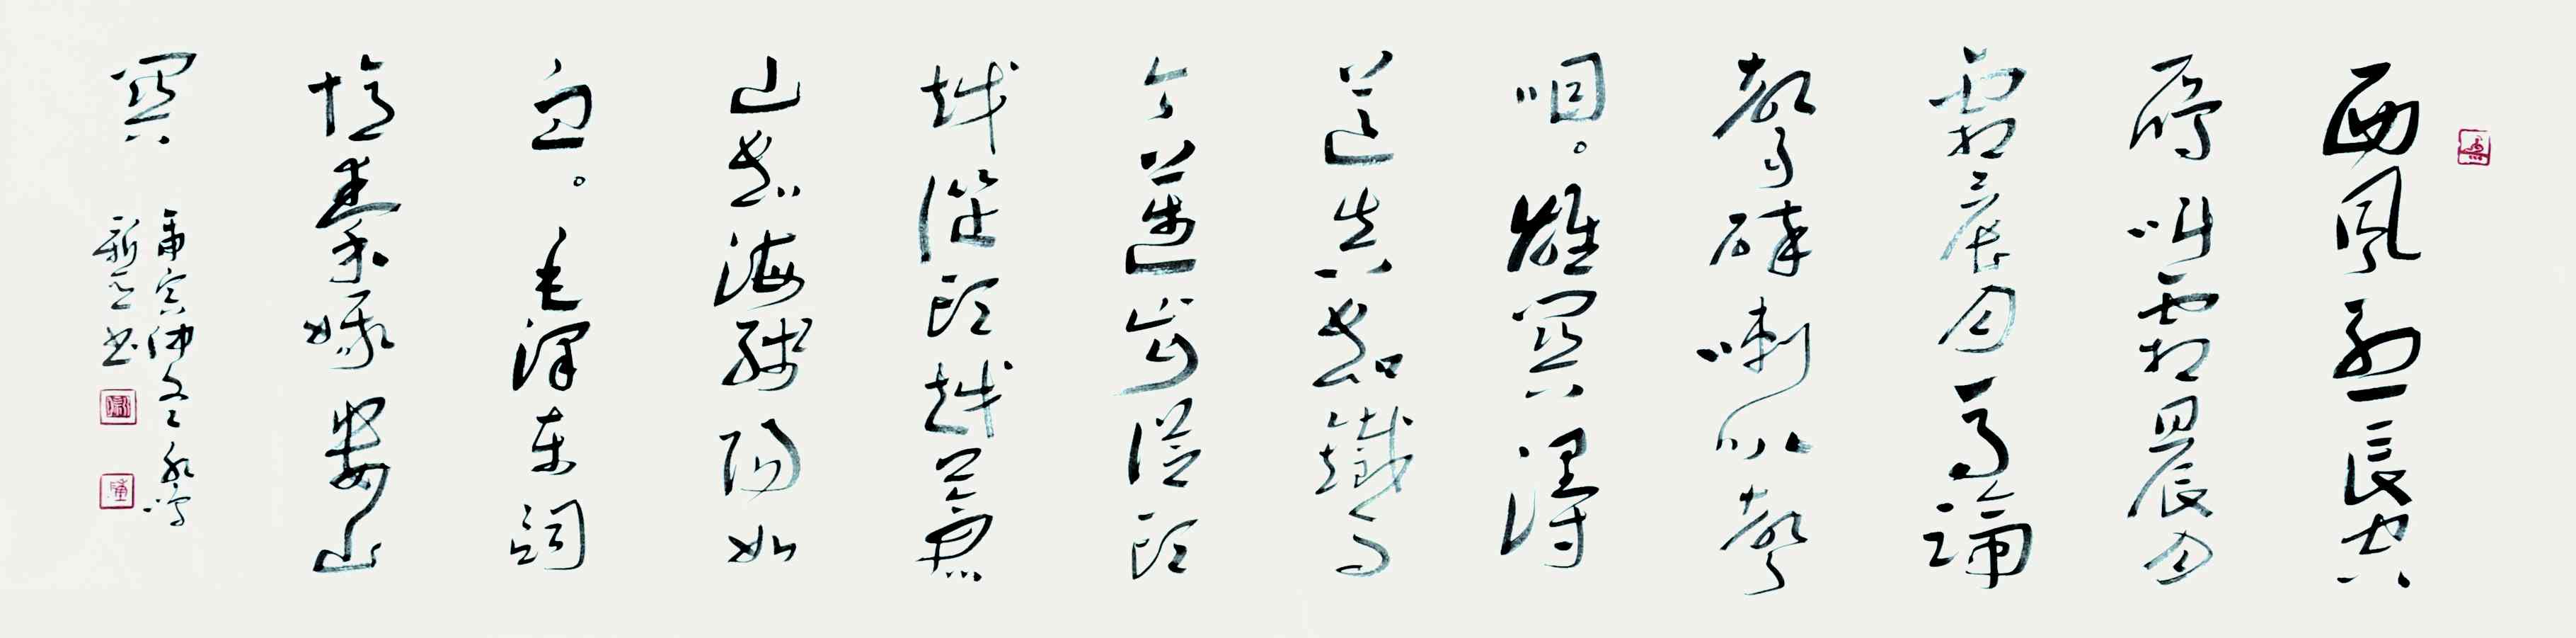 西風烈長空
雁叫霜晨月
霜晨月馬蹄
聲碎喇叭聲
咽。雄關漫
道真如鐵而
今邁步從頭
越從頭越蒼
山如海殘陽如
血。毛澤東詞
憶秦娥婁山
關
庚寅仲冬永鳴
書